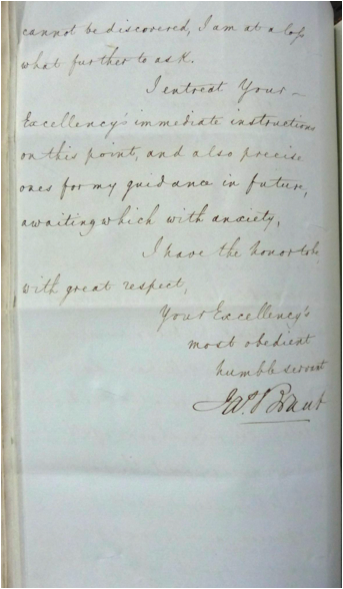 cannot be discovered, I am at a loss
what further to ask.
I entreat Your
Excellency's immediate instructions
on this point, and also precise
ones for my guidance in future,
awaiting which with anxiety,
I have the honor to be,
with great respect,
Your Excellency's
most obedient
humble servant
Jas. Brant